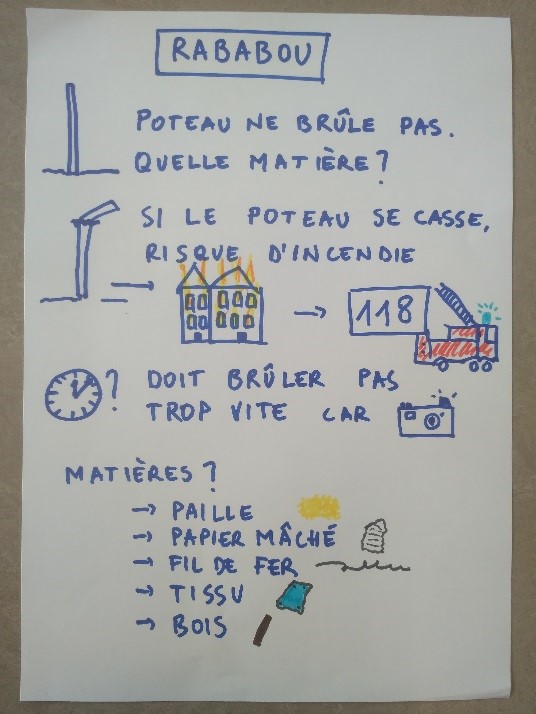 RABABOU
POTEAU NE BRÛLE PAS.
QUELLE MATIÈRE?
SI LE POTEAU SE CASSE,
RISQUE D'INCENDIE
→ → 118
? DOIT BRÛLER PAS
TROP VITE CAR
MATIÈRES?
→ PAILLE
→ PAPIER MÂCHÉ
→ FIL DE FER
→ TISSU
→ BOIS